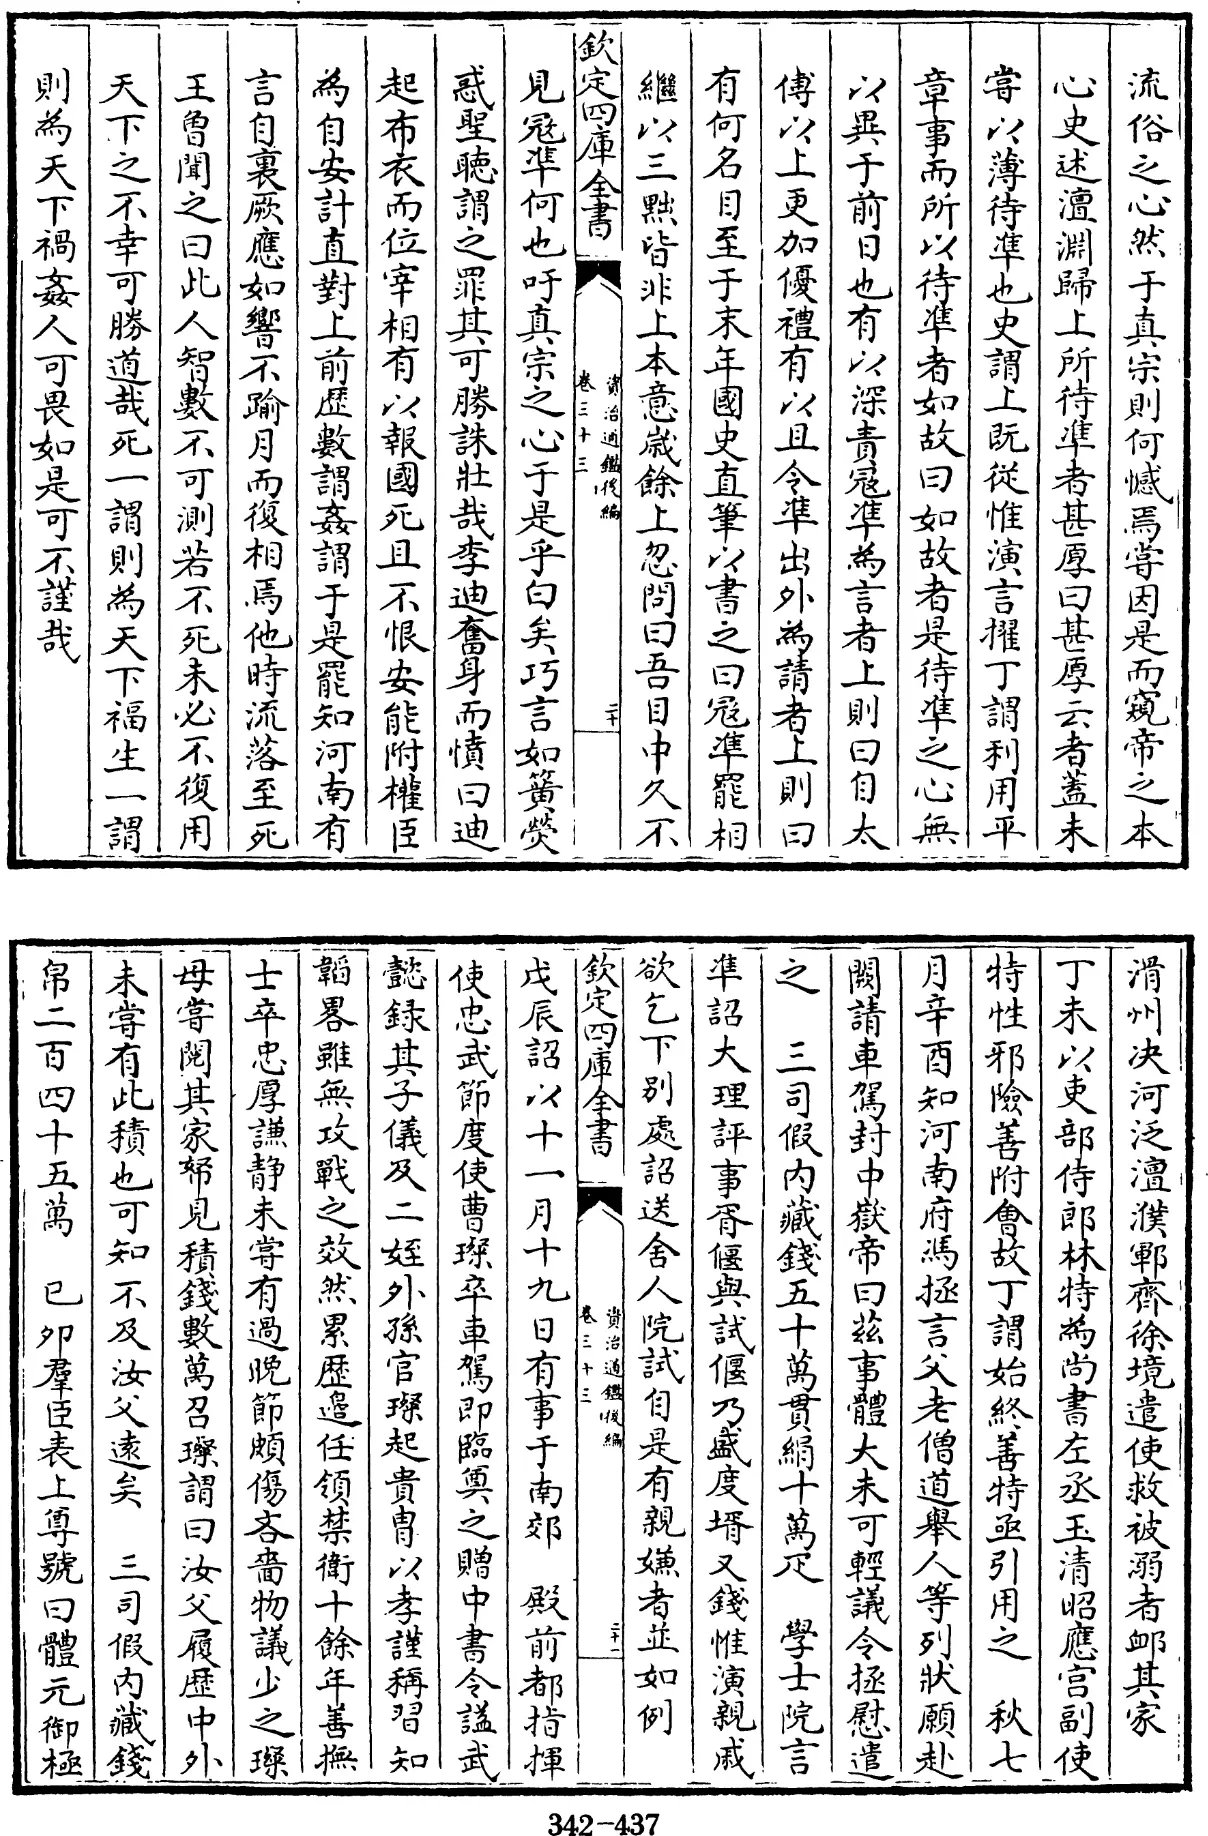 流俗之心然于真宗則何憾焉嘗因是而窺帝之本
心史述澶淵歸上所待準者甚厚曰甚厚云者蓋未
嘗以薄待準也史謂上既從惟演言擢丁謂利用平
章事而所以待準者如故曰如故者是待準之心無
以異于前日也有以深責寇準為言者上則曰自太
傅以上更加優禮有以且令準出外為請者上則曰
有何名目至于末年國史直筆以書之曰寇準罷相
繼以三黜皆非上本意歲餘上忽問曰吾目中久不
欽定四庫全書
資治通鑑後編
卷三十三
二十
見寇準何也吁真宗之心于是乎白矣巧言如簧熒
惑聖聽謂之罪其可勝誅壯哉李迪奮身而憤曰迪
起布衣而位宰相有以報國死且不恨安能附權臣
為自安計直對上前歴數謂姦謂于是罷知河南有
言自裏厥應如響不踰月而復相焉他時流落至死
王曾聞之曰此人智數不可測若不死未必不復用
天下之不幸可勝道哉死一謂則為天下福生一謂
則為天下禍姦人可畏如是可不謹哉
滑州決河泛澶濮鄆齊徐境遣使救被溺者卹其家
丁未以吏部侍郎林特為尚書左丞玉清昭應宫副使
特性邪險善附會故丁謂始終善特亟引用之　秋七
月辛酉知河南府馮拯言父老僧道舉人等列狀願赴
闕請車駕封中嶽帝曰兹事體大未可輕議令拯慰遣
之　三司假内藏錢五十萬貫絹十萬疋　學士院言
準詔大理評事胥偃與試偃乃盛度壻又錢惟演親戚
欲乞下别處詔送舍人院試自是有親嫌者並如例
欽定四庫全書
資治通鑑後編
卷三十三
二十一
戊辰詔以十一月十九日有事于南郊　殿前都指揮
使忠武節度使曹璨卒車駕即臨奠之贈中書令諡武
懿録其子儀及二姪外孫官璨起貴胄以孝謹稱習知
韜畧雖無攻戰之效然累歴邉任領禁衛十餘年善撫
士卒忠厚謙静未嘗有過晩節頗傷吝嗇物議少之璨
母嘗閲其家帑見積錢數萬召璨謂曰汝父履歴中外
未嘗有此積也可知不及汝父遠矣　三司假内藏錢
帛二百四十五萬　已夘羣臣表上尊號曰體元御極
342-437